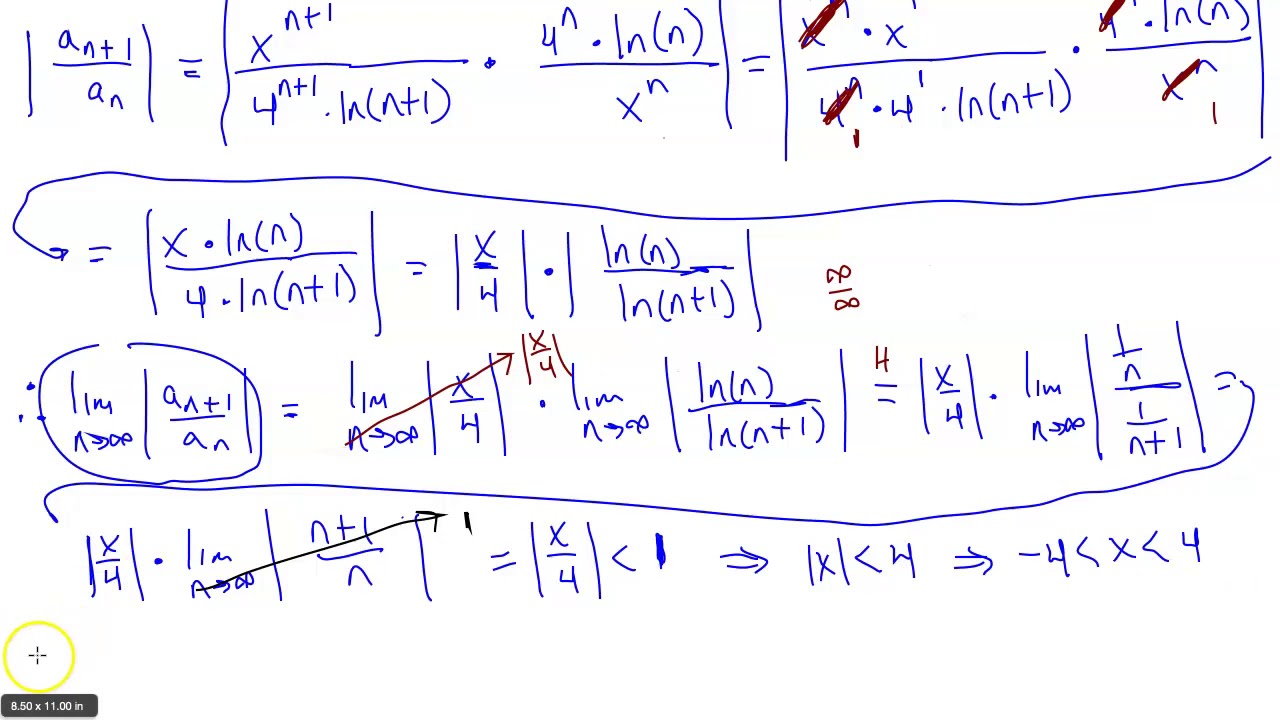 |a_{n+1}/a_n| = |x^{n+1}/(4^{n+1}·ln(n+1)) · (4^n·ln(n))/x^n| = |(x^n·x^1)/(4^n·4^1·ln(n+1)) · (4^n·ln(n))/x^n| 1 1
= |(x·ln(n))/(4·ln(n+1))| = |x/4|·|ln(n)/ln(n+1)| ∞/∞
∴ lim_{n→∞} |a_{n+1}/a_n| = lim_{n→∞} |x/4| → |x/4| · lim_{n→∞} |ln(n)/ln(n+1)| =^H |x/4| · lim_{n→∞} |(1/n)/(1/(n+1))| =
|x/4| · lim_{n→∞} |(n+1)/n| → 1 = |x/4| < 1 ⇒ |x| < 4 ⇒ -4 < x < 4
8.50 x 11.00 in